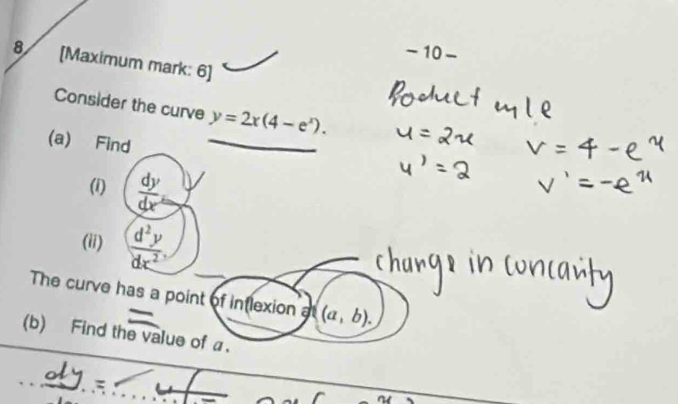 - 10 -
8. [Maximum mark: 6]
Product rule
Consider the curve y = 2x(4 − eˣ).
u = 2x v = 4 - eˣ
u' = 2 v' = -eˣ
(a) Find
(i) dy/dx
(ii) d²y/dx².
change in concavity
The curve has a point of inflexion at (a, b).
(b) Find the value of a.
dy =